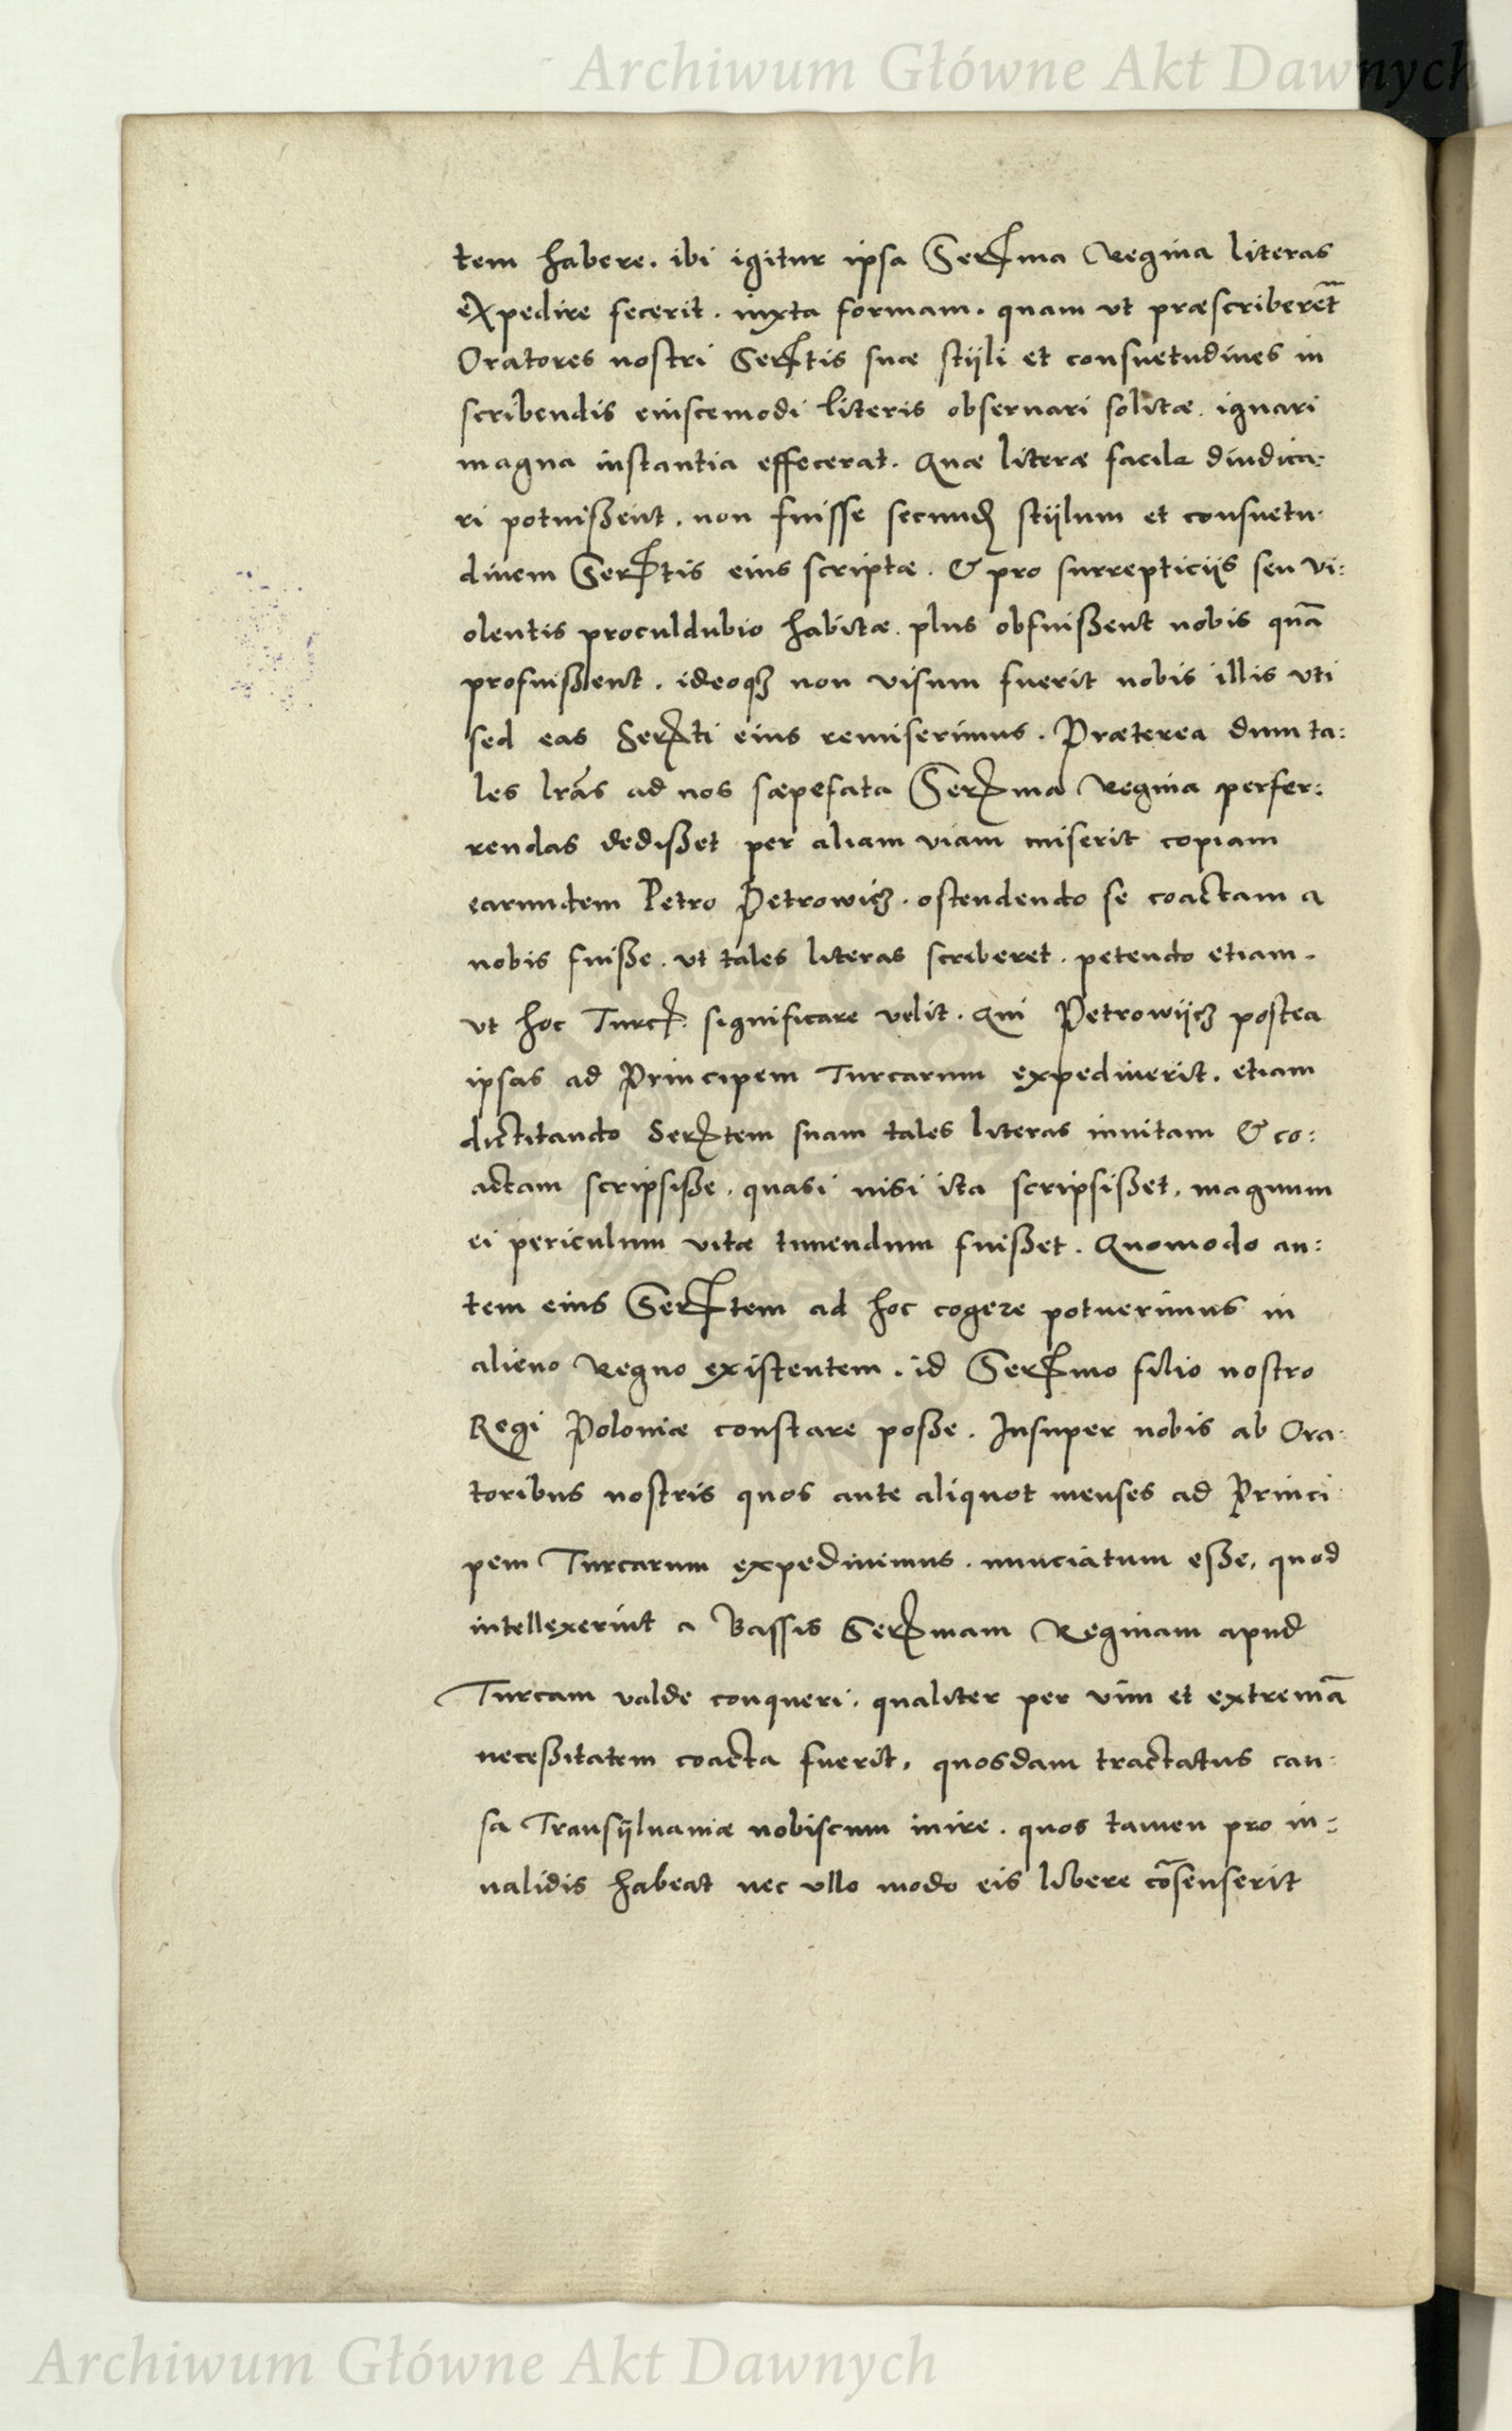 Archiwum Główne Akt Dawnych
tem habere. ibi igitur ipsa Serma Regina literas
expedire fecerit. iuxta formam. quam vt præscriberet̃
Oratores nostri Sertis suæ stÿli et consuetudines in
scribendis eiuscemodi literis obseruari solitæ. ignari
magna instantia effecerat. Quæ literæ facile diudica:
ri potuißent. non fuisse secundꝫ stÿlum et consuetu:
dinem Sertis eius scriptæ. & pro surrepticijs seu vi:
olentis proculdubio habitæ. plus obfuißent nobis quã
profuißent. ideoqꝫ non visum fuerit nobis illis vti
sed eas Serti eius remiserimus. Præterea dum ta:
les lrãs ad nos sæpefata Serma Regina perfer:
rendas dedißet per aliam viam miserit copiam
earundem Petro Petrowicz. ostendendo se coactam a
nobis fuiße. vt tales literas scriberet. petendo etiam.
vt hoc Turcę significare velit. Qui Petrowÿcz postea
ipsas ad Principem Turcarum expediuerit. etiam
dictitando Sertem suam tales literas inuitam & co:
actam scripsiße. quasi nisi ita scripsißet. magnum
ei periculum vitæ timendum fuißet. Quomodo au:
tem eius Sertem ad hoc cogere potuerimus in
alieno Regno existentem. id Sermo filio nostro
Regi Poloniæ constare poße. Insuper nobis ab Ora:
toribus nostris quos ante aliquot menses ad Princi:
pem Turcarum expediuimus. nunciatum eße, quod
intellexerint a Bassis Sermam Reginam apud
Turcam valde conqueri. qualiter per vim et extremã
neceßitatem coacta fuerit, quosdam tractatus cau:
sa Transÿluaniæ nobiscum inire. quos tamen pro in:
ualidis habeat nec vllo modo eis libere cõsenserit
Archiwum Główne Akt Dawnych